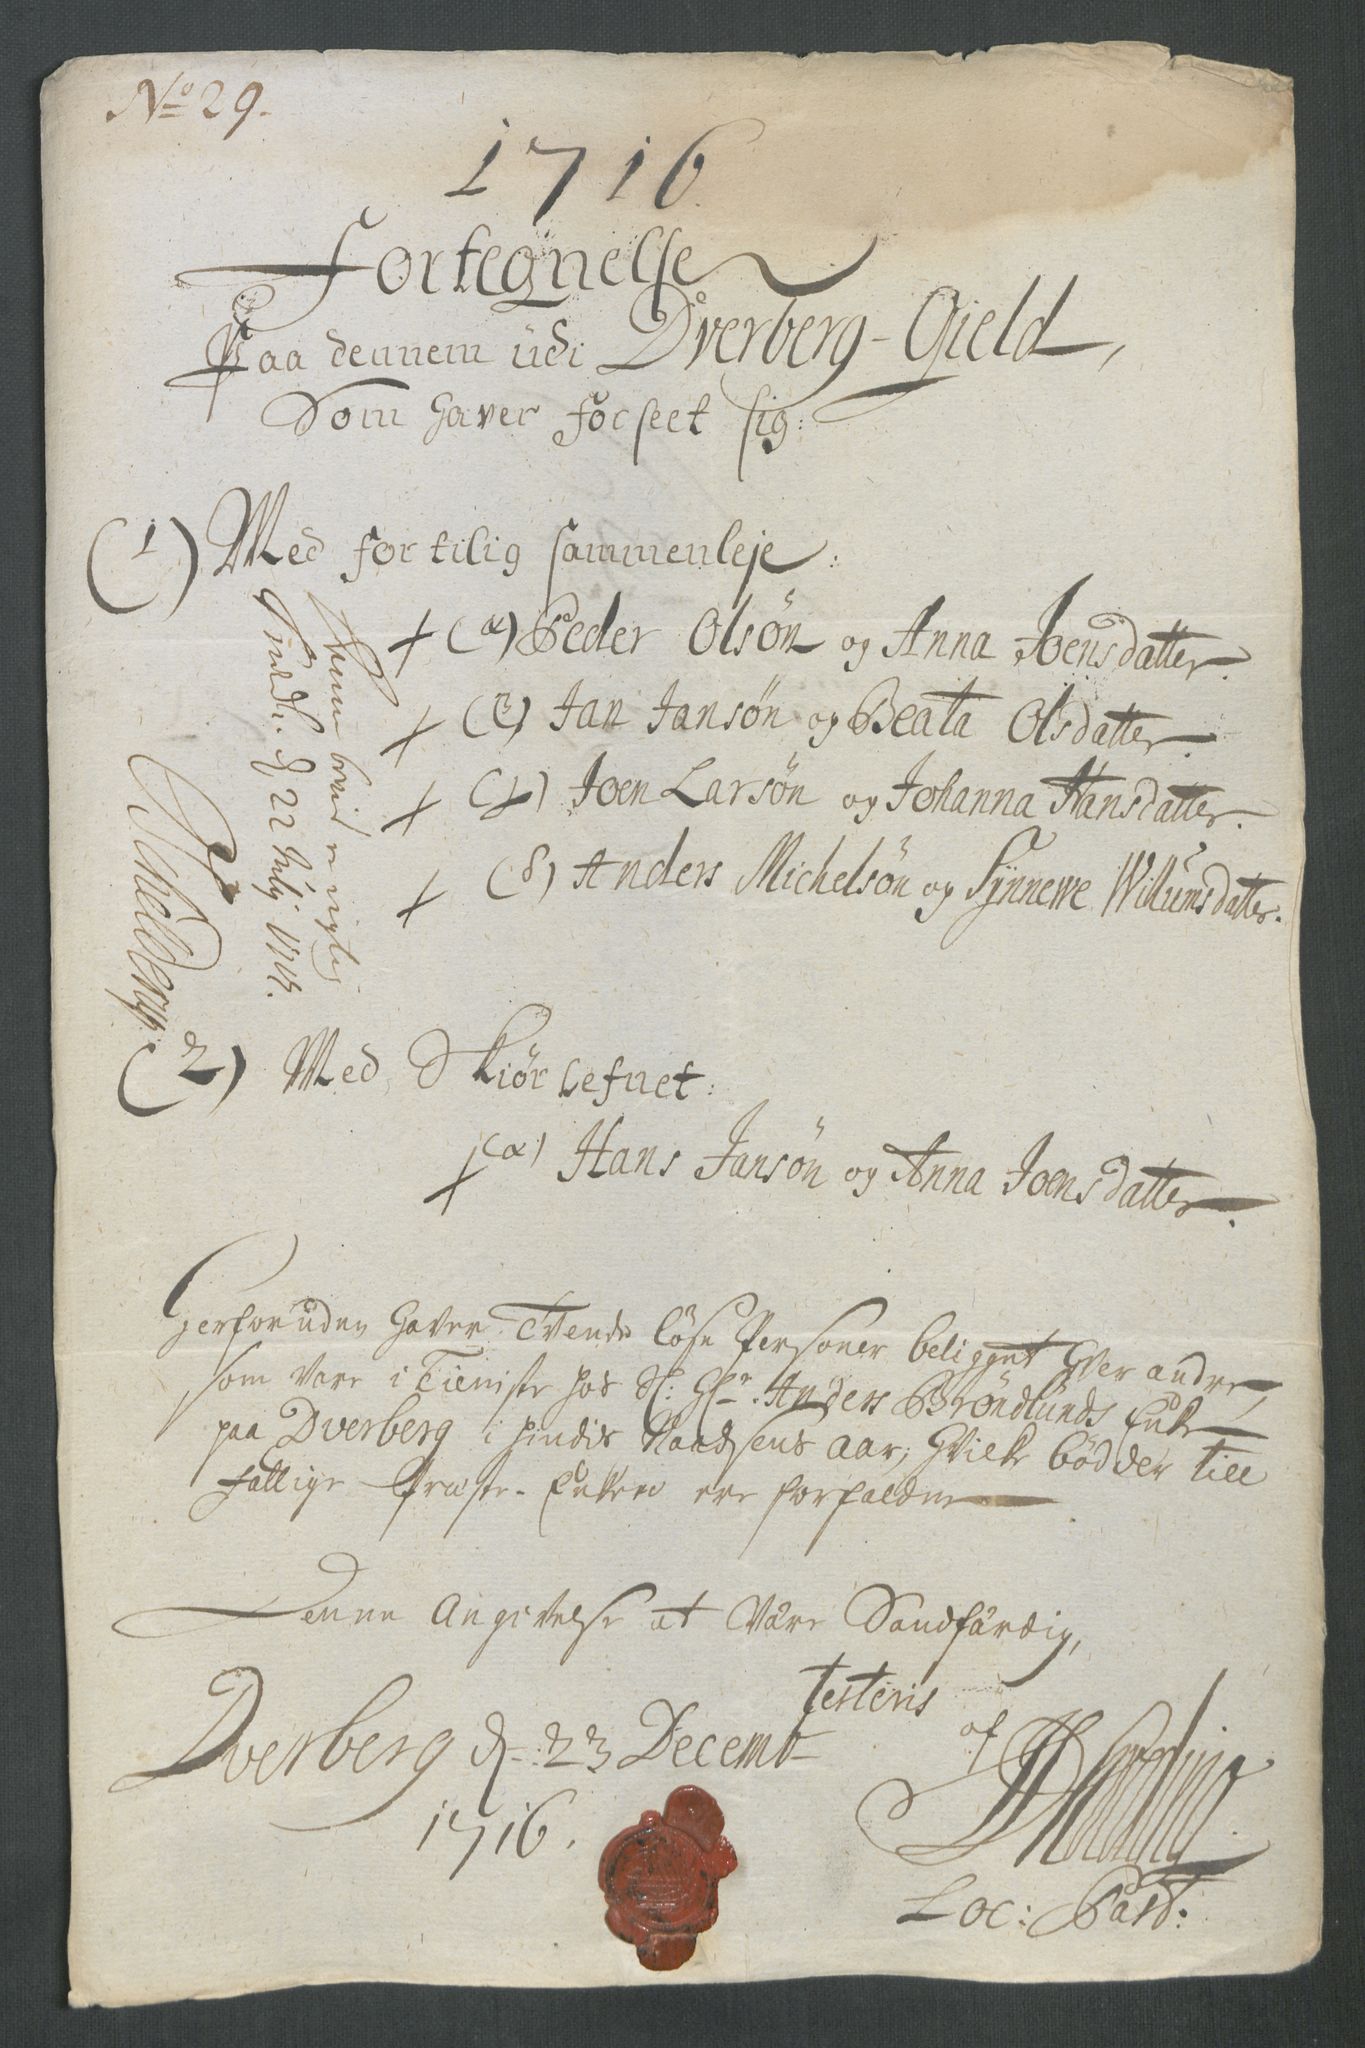 No 29.
1716
Fortegnelse
Paa dennem udi Dverberg-Gield,
Som haver forseet sig:
(1) Med fortilig sammenleje:
+ (α) Peder Olsøn og Anna Joensdatter.
+ (β) Jan Jansøn og Beata Olsdatter.
+ (γ) Joen Larsøn og Johanna Hansdatter.
+ (δ) Anders Michelsøn og Synnewe Willumsdatter.
d. 22 July
(2) Med Skiørlefnet:
+ (α) Hans Jansøn og Anna Joensdatter.
Herforuden haver tvende løse Personer beligget hver andre
som vare i Tieniste hos Sl: Hr: Anders Brøndlunds Enke
paa Dverberg i hendis Naadsens aar, hvilke bødder till
fattige Præste-Enker ere forfaldne
Denne Angivelse at være Sandfærdig,
testeris
Dverberg d. 23 Decemb
af
1716.
Loc: Past: